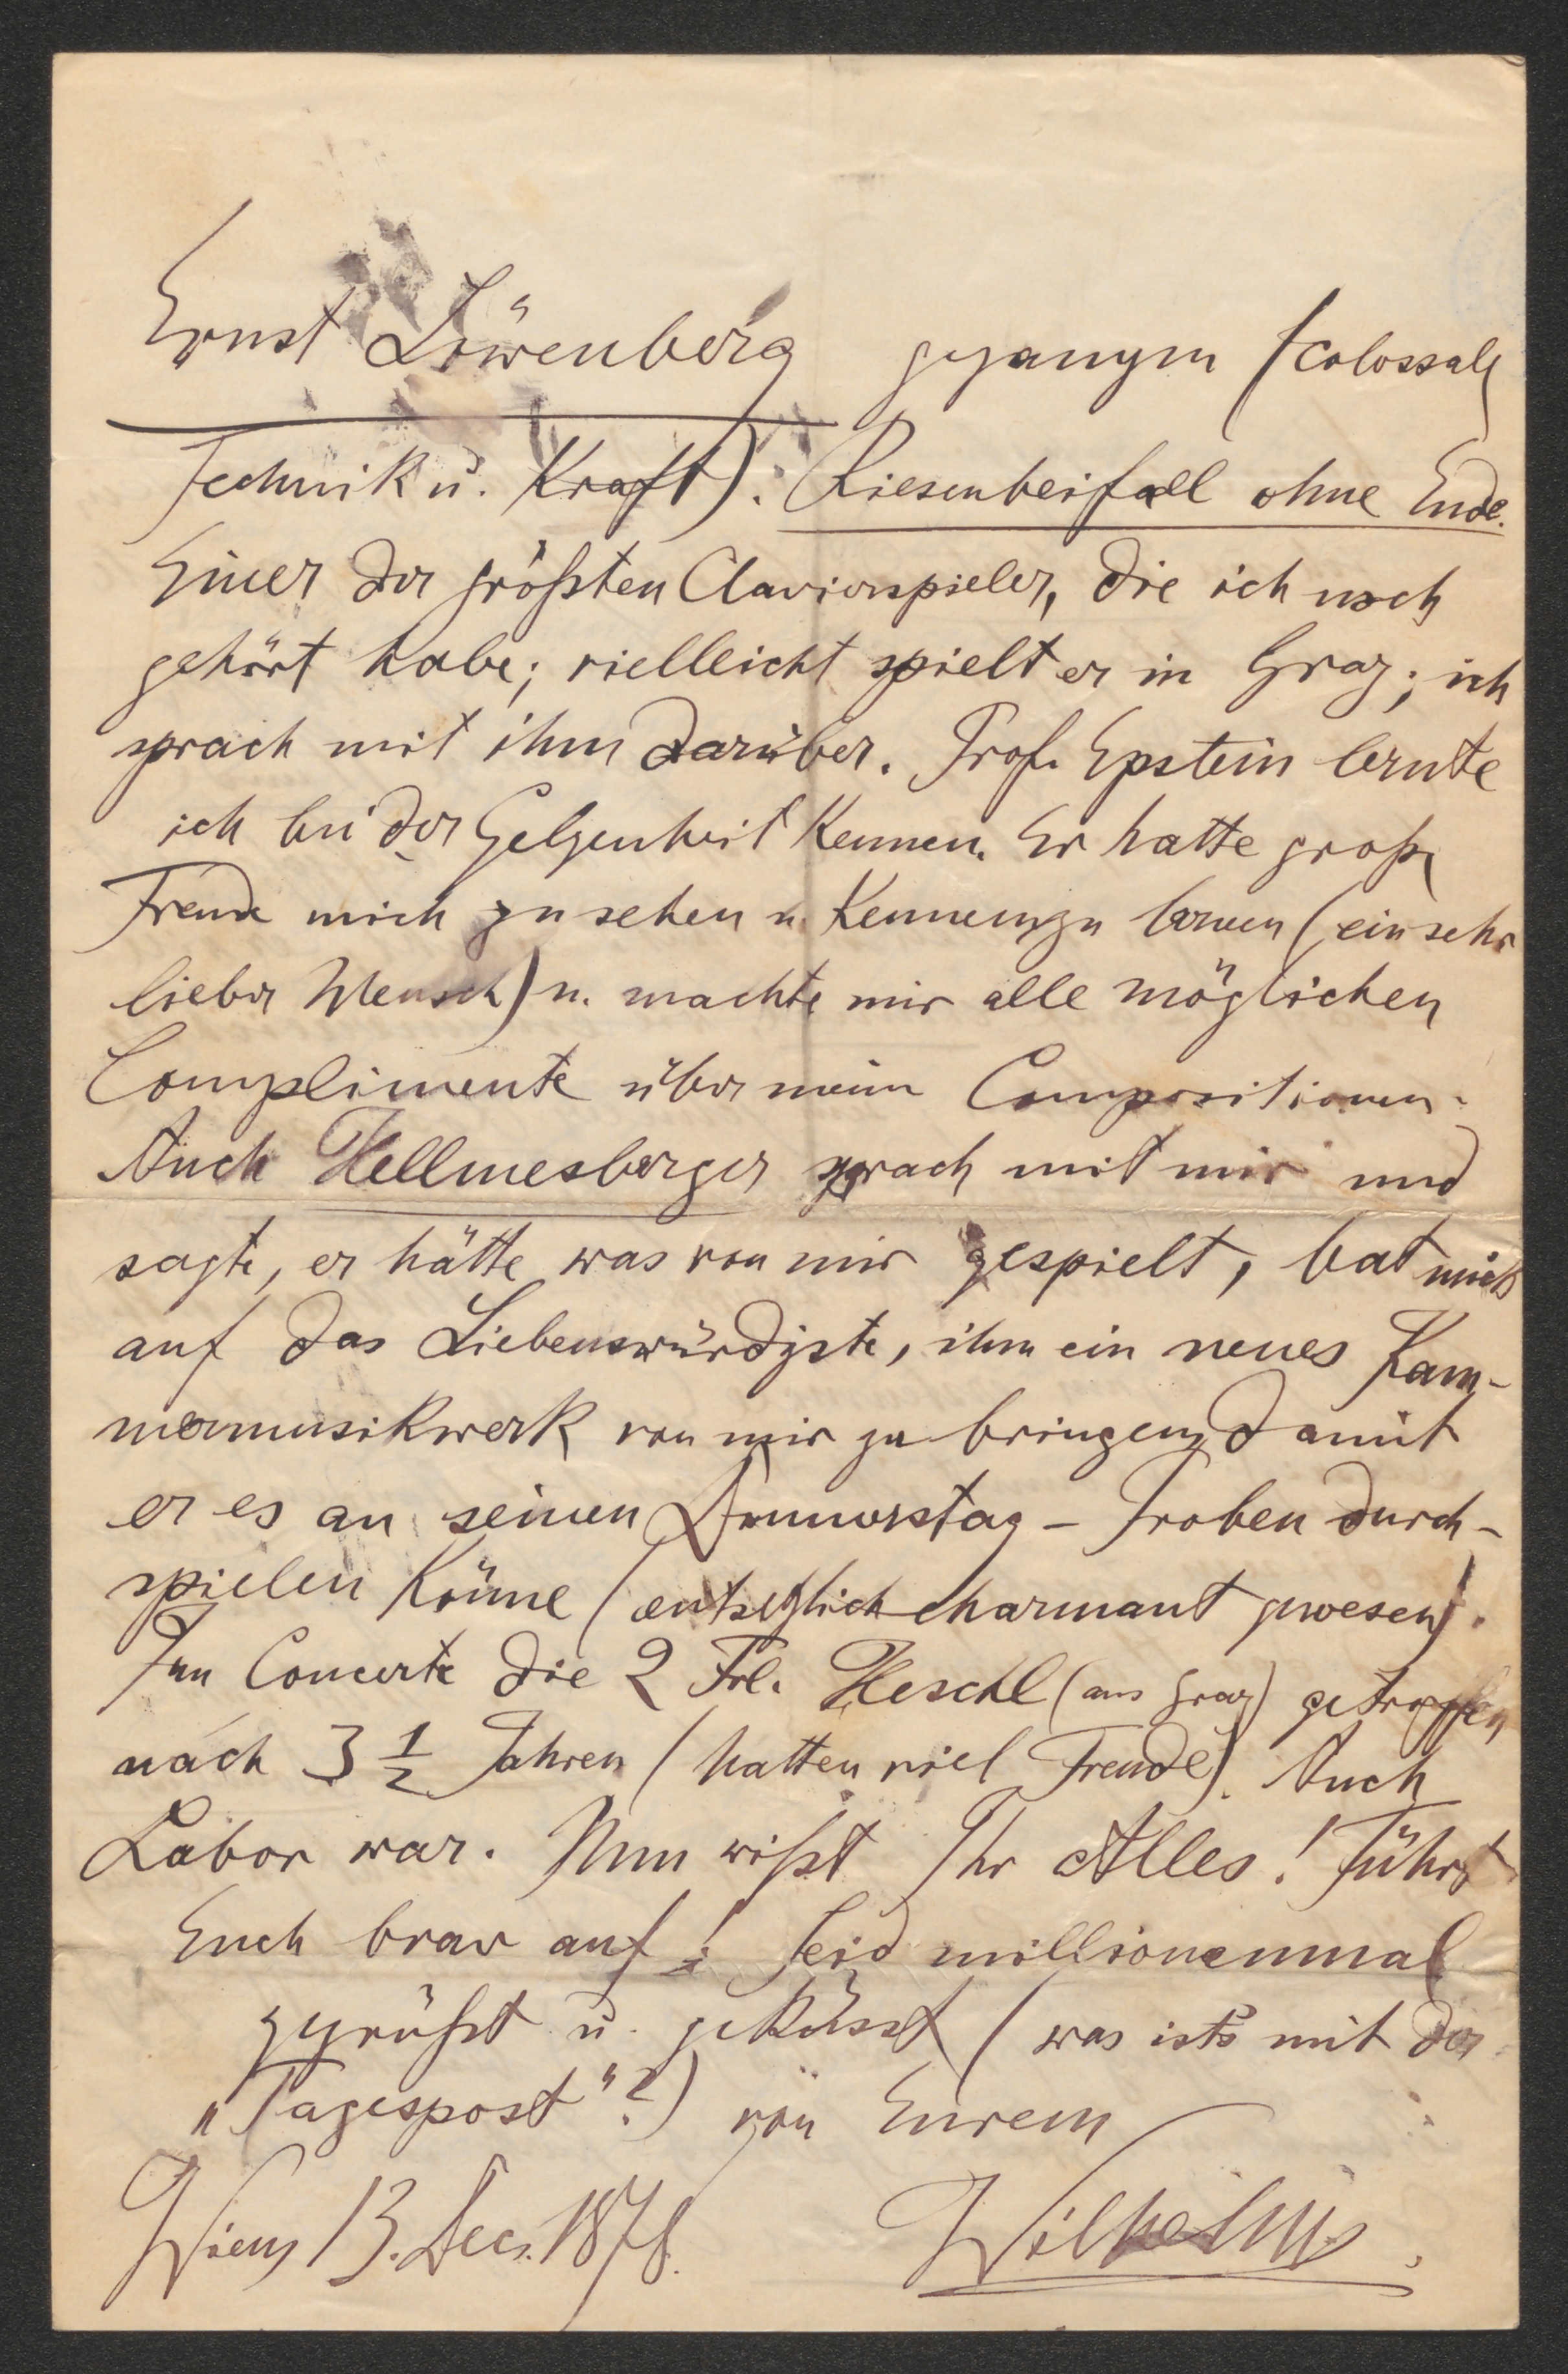 Ernst Löwenberg gegangen (colossale
Technik u. Kraft). Riesenbeifall ohne Ende.
Einer der größten Clavierspieler, die ich noch
gehört habe; vielleicht spielt er in Graz; ich
sprach mit ihm darüber. Prof. Epstein lernte
ich bei der Gelgenheit kennen. Er hatte große
Freude mich zu sehen u. kennenzu lernen (ein sehr
lieber Mensch) u. machte mir alle möglichen
Complimente über meine Compositionen.
Auch Hellmesberger sprach mit mir und
sagte, er hätte was von mir gespielt, bat mich
auf das Liebenswürdigste, ihm ein neues Kam-
mermusikwerk von mir zu bringen, damit
er es an seinen Donnerstag - Proben durch-
spielen könne (entsetzlich charmant gewesen).
Im Concerte die 2 Frl. Heschl (aus Graz) getroffen
nach 3 1/2 Jahren (hatten viel Freude). Auch
Labor war. Nun wißt Ihr Alles! Führt
Euch brav auf! Seid millionenmal
gegrüßt u. geküsst (was ists mit der
„Tagespost"?) von Eurem
Wien 13. Dec. 1878. Wilhelm.